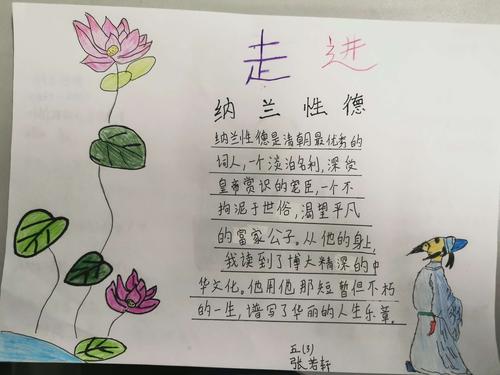 走进
纳兰性德
纳兰性德是清朝最优秀的
词人,一个淡泊名利,深受
皇帝赏识的宠臣,一个不
拘泥于世俗,渴望平凡
的富家公子。从他的身上,
我读到了博大精深的中
华文化。他用他那短暂但不朽
的一生,谱写了华丽的人生乐章。
五(3)
张若轩